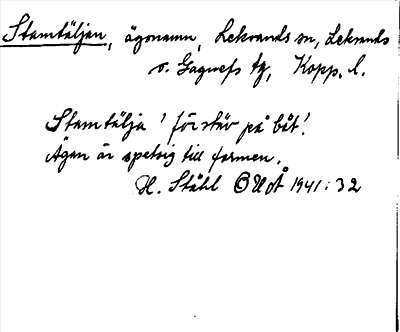 Stamtäljan, ägonamn, Leksands sn, Leksands
o. Gagnefs tg, Kopp. l.
Stamtälja 'förstäv på båt'.
Ägan är spetsig till formen.
H. Ståhl OUÅ 1941:32